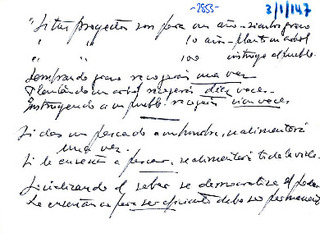 -2853- 3/1/147
"Si tus proyectos son para un año - siembra grano
" " 10 años - Planta un árbol
" " 100 instruye al pueblo.
Sembrando grano recogerás una vez
Plantando un árbol recogerás diez veces
Instruyendo a un pueblo recogerás cien veces
Si das un pescado a un hombre, se alimentará
una vez.
Si le enseñas a pescar, se alimentará toda la vida.
Socializando el saber se democratiza el poder
La enseñanza para ser eficiente debe ser permanente